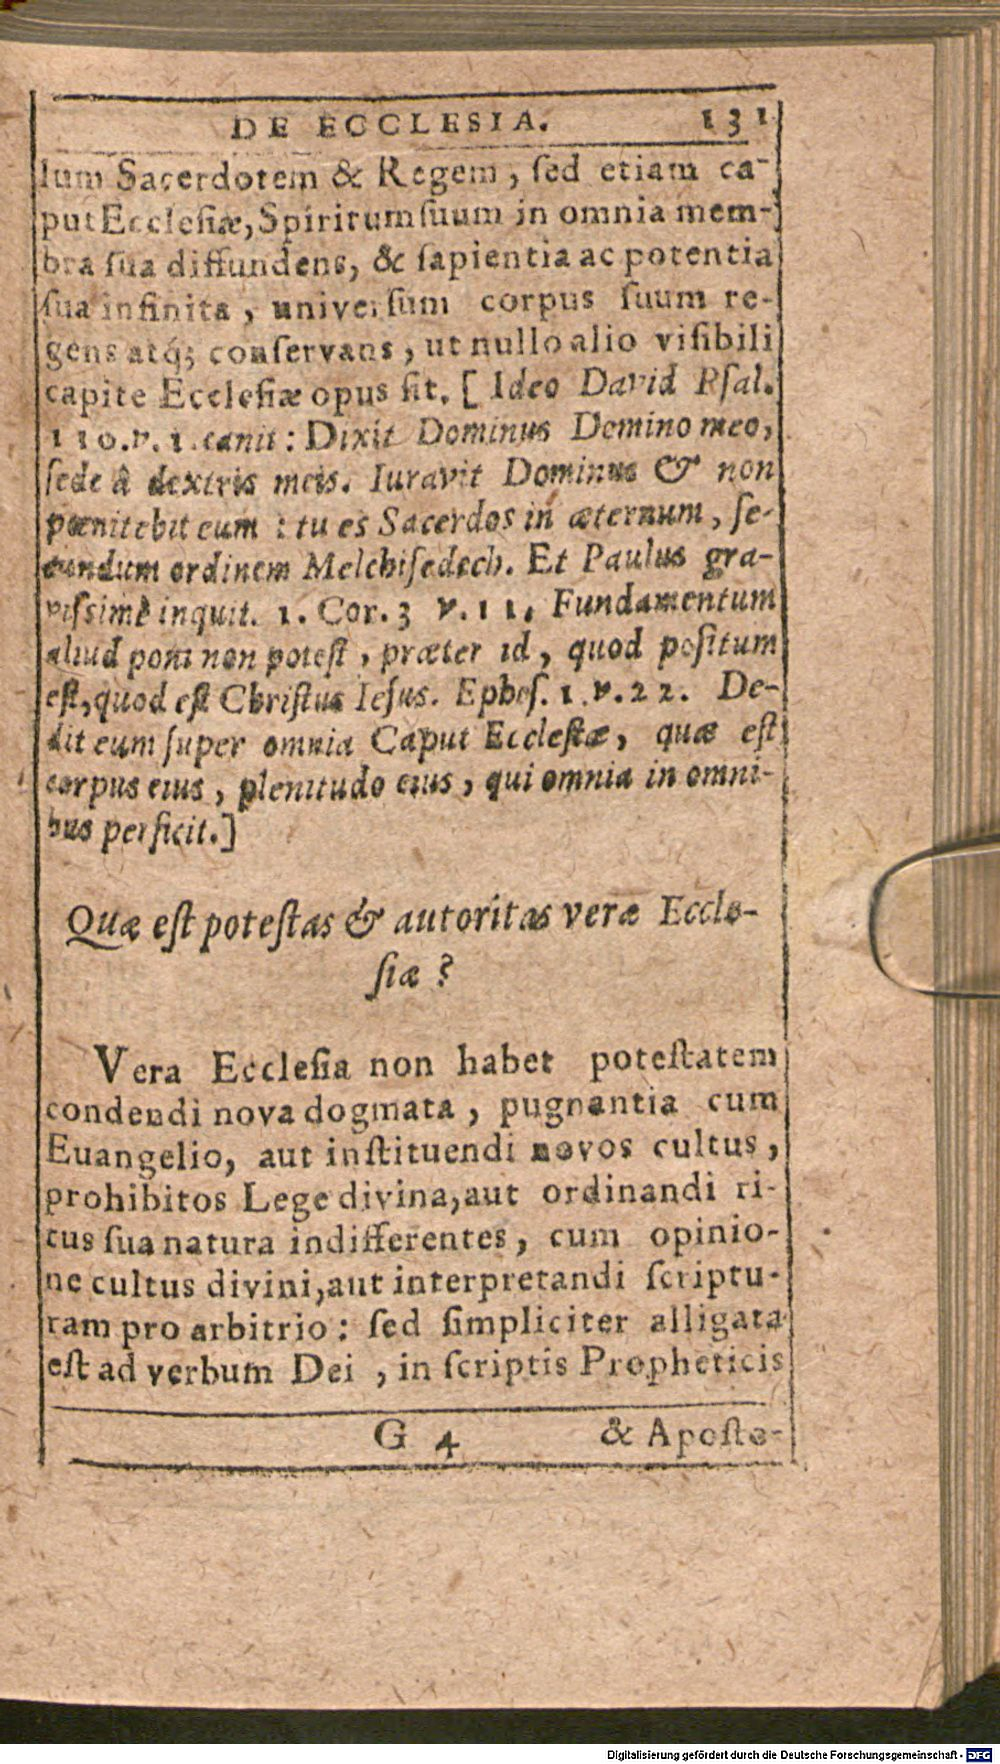 DE ECCLESIA. 131
lum Sacerdotem & Regem, ſed etiam ca-
put Eccleſiæ, Spiritum ſuum in omnia mem-
bra ſua diffundens, & ſapientia ac potentia
ſua infinita, univerſum corpus ſuum re-
gens atq́; conſervans, ut nullo alio viſibili
capite Eccleſiæ opus ſit. [ Ideo David Pſal.
110. v. 1. canit: Dixit Dominus Domino meo,
ſede â dextris meis. Iuravit Dominus & non
pœnitebit eum: tu es Sacerdos in æternum, ſe-
cundum ordinem Melchiſedech. Et Paulus gra-
viſſimè inquit. 1. Cor. 3 v. 11. Fundamentum
aliud poni non poteſt, præter id, quod poſitum
eſt, quod eſt Chriſtus Ieſus. Epheſ. 1. v. 22. De-
dit eum ſuper omnia Caput Eccleſiæ, quæ eſt
corpus eius, plenitudo eius, qui omnia in omni-
bus perficit.]
Quæ eſt poteſtas & autoritas veræ Eccle-
ſiæ?
Vera Eccleſia non habet poteſtatem
condendi nova dogmata, pugnantia cum
Euangelio, aut inſtituendi novos cultus,
prohibitos Lege divina, aut ordinandi ri-
tus ſua natura indifferentes, cum opinio-
ne cultus divini, aut interpretandi ſcriptu-
ram pro arbitrio: ſed ſimpliciter alligata
eſt ad verbum Dei, in ſcriptis Propheticis
G 4 & Apoſto-
Digitalisierung gefördert durch die Deutsche Forschungsgemeinschaft - DFG